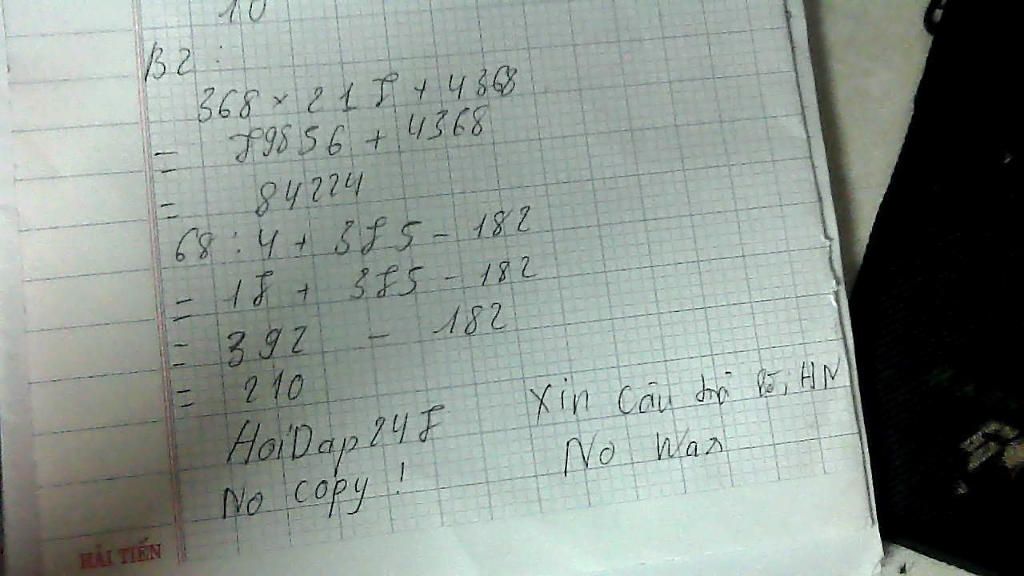 10
B2:
368 × 217 + 4368
= 79856 + 4368
= 84224
68 : 4 + 375 - 182
= 17 + 375 - 182
= 392 - 182
= 210
HoiDap247
No copy!
Xin câu trả lời, HN
No
HẢI TIẾN